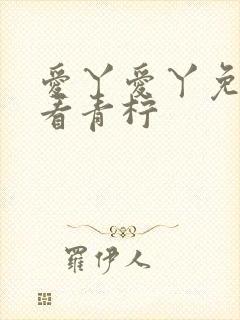 愛丫愛丫免
看青柠
羅伊人